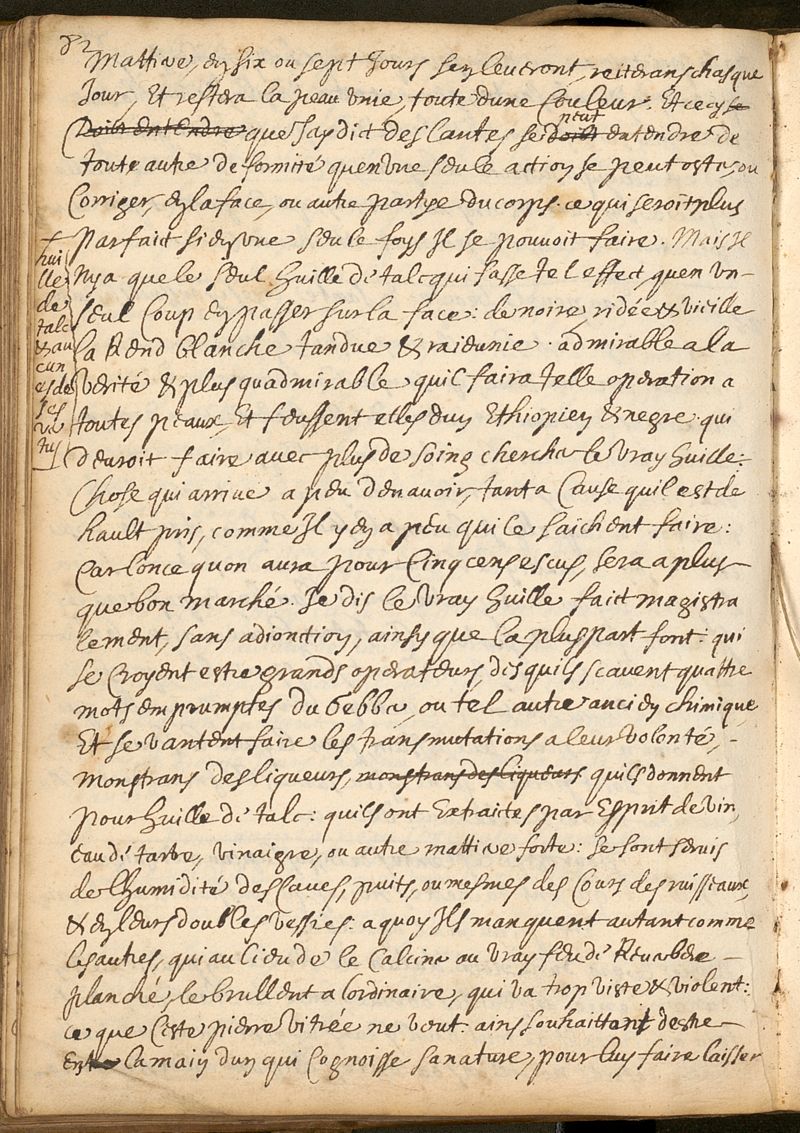 82
Mattiere, en six ou sept Jours s'enleveront, reiterans chasque
Jour, Et restera la peau unie, toute dune Couleur. Et cecy se
doibt entendre que J'ay dict des lantes se doibt peut entendre de
toute autre deformité qu'en une seule action se peut oster, ou
Corriger, en la face, ou autre partye du corps. ce qui seroit plus
parfaict si en une seule foys Il se pouvoit faire. Mais Il
n'y a que le seul huille de talc qui fasse tel effect, qu'en un
seul Coup en passer sur la face: de noire, ridée & vieille
la Rend blanche tandue & raieunie. admirable a la
verité & plus qu'admirable quil faira telle operation a
toutes peaux, Et feussent elles d'un Ethiopien & negre. qui
devroit faire avec plus de soing chercher le vray huille:
Chose qui arrive a peu d'en avoir, tant a Cause quil est de
hault pris, comme Il y en a peu qui le saichent faire:
Car l'once quon aura pour Cinq cens escus, sera a plus
que bon marché. Je dis le vray huille faict magistra
lement, sans adionction, ainsy que la pluspart font: qui
se Croyent estre grands operateurs, des quils scavent quattre
mots empruntes du Gebber, ou tel autre ancien chimique,
Et se vantent faire les transmutations a leur volonté,
monstrans des liqueurs, monstrans des liqueurs quils donnent
pour huille de talc: quils ont Extraictes par Esprit de vin,
eau de tartre, vinaigre, ou autre mattiere forte: se sont servis
de lhumidité des Caves, puits, ou mesmes des Cours des ruisseaux,
& en leurs doubles vessies: a quoy Ils manquent autant comme
les autres, qui au lieu de le Calciner au vray feu de Reverbere
planché, le brullent a lordinaire, qui va trop viste & violent:
ce que Ceste pierre vitrée ne veut: ains souhaittant destre
Entre la main dun qui Cognoisse sa nature, pour luy faire laisser
hui
lle
de
talc
& au
cun
es de
ses
ver
tus